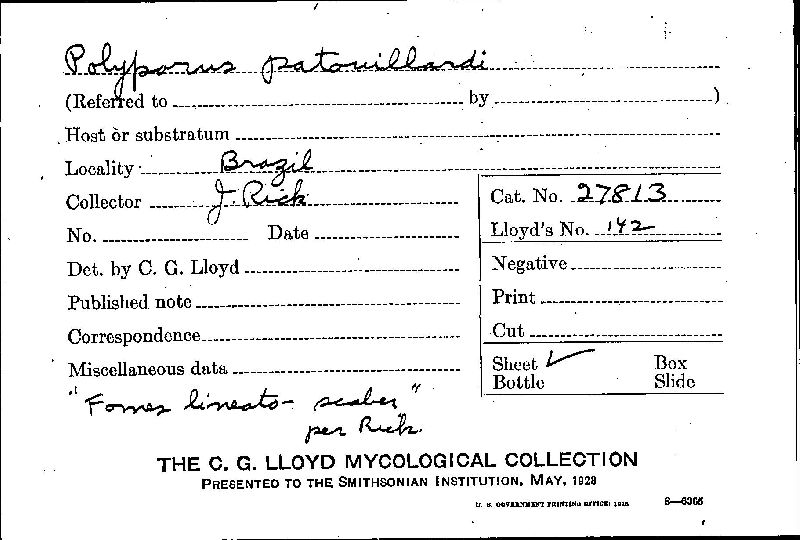 Polyporus patouillardi
(Referred to by )
Host or substratum
Locality Brazil
Collector J. Rick
No. Date
Det. by C. G. Lloyd
Published note
Correspondence
Miscellaneous data
"Fomes lineato-scaber"
per Rick.
Cat. No. 27813
Lloyd's No. 142
Negative
Print
Cut
Sheet ✓ Box
Bottle Slide
THE C. G. LLOYD MYCOLOGICAL COLLECTION
PRESENTED TO THE SMITHSONIAN INSTITUTION, MAY, 1928
U. S. GOVERNMENT PRINTING OFFICE: 1928 8—6365